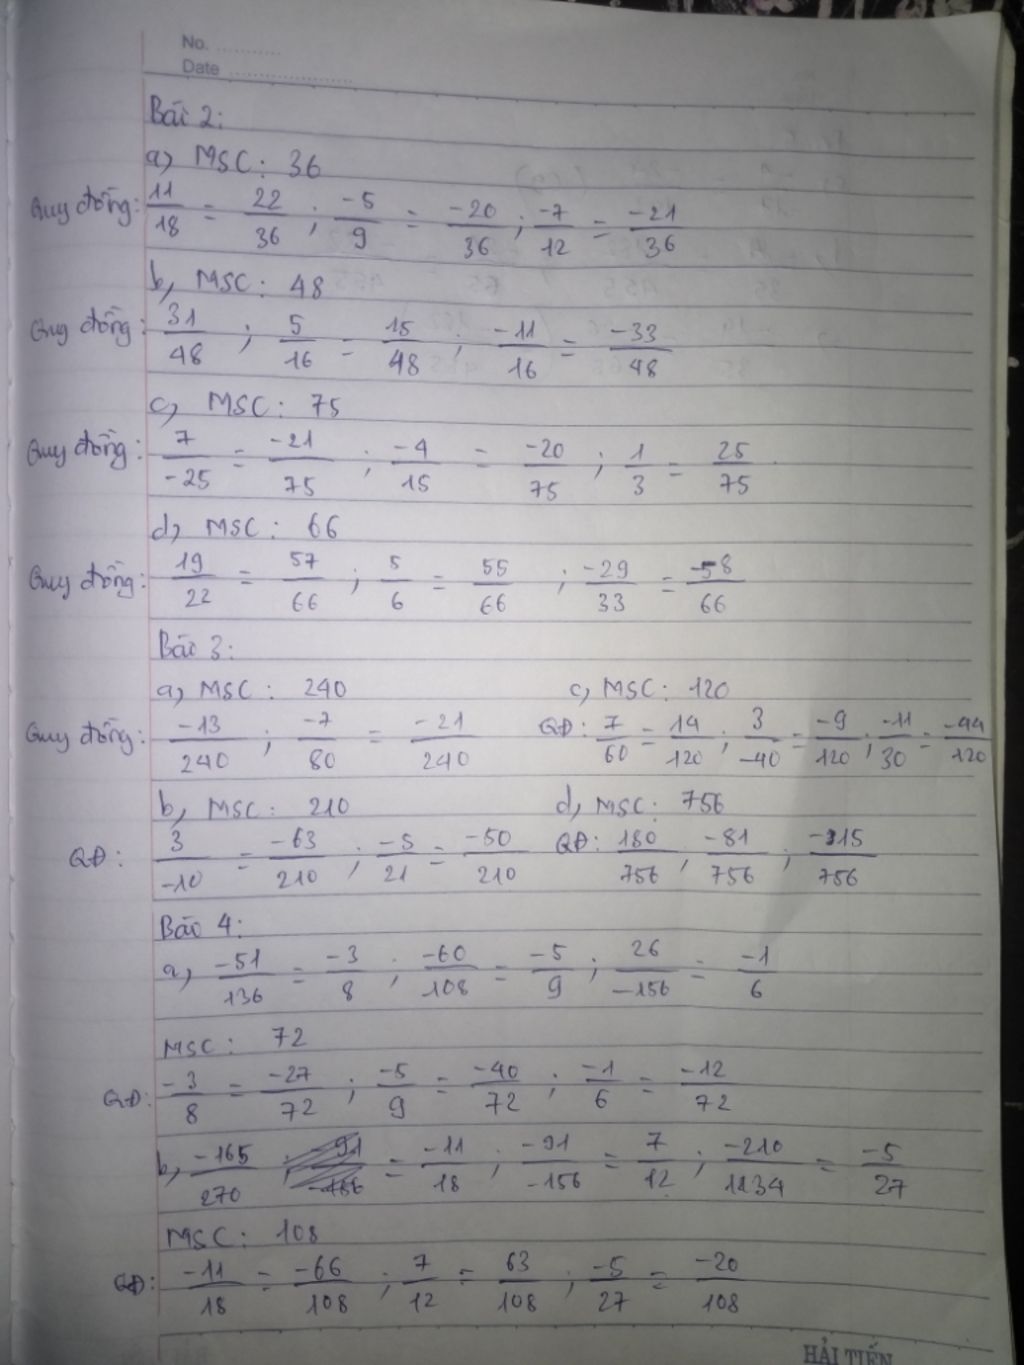 No. ..........
Date ..................
Bài 2:
a, MSC: 36
Quy đồng: 11/18 = 22/36 ; -5/9 = -20/36 ; -7/12 = -21/36
b, MSC: 48
Quy đồng: 31/48 ; 5/16 = 15/48 ; -11/16 = -33/48
c, MSC: 75
Quy đồng: 7/-25 = -21/75 ; -4/15 = -20/75 ; 1/3 = 25/75
d, MSC: 66
Quy đồng: 19/22 = 57/66 ; 5/6 = 55/66 ; -29/33 = -58/66
Bài 3:
a, MSC: 240
Quy đồng: -13/240 ; -7/80 = -21/240
b, MSC: 210
QĐ: 3/-10 = -63/210 ; -5/21 = -50/210
c, MSC: 120
QĐ: 7/60 = 14/120 ; 3/-40 = -9/120 ; -11/30 = -44/120
d, MSC: 756
QĐ: 180/756 ; -81/756 ; -315/756
Bài 4:
a, -51/136 = -3/8 ; -60/108 = -5/9 ; 26/-156 = -1/6
MSC: 72
QĐ: -3/8 = -27/72 ; -5/9 = -40/72 ; -1/6 = -12/72
b, -165/270 = -11/18 ; -91/-156 = 7/12 ; -210/1134 = -5/27
MSC: 108
QĐ: -11/18 = -66/108 ; 7/12 = 63/108 ; -5/27 = -20/108
HẢI TIẾN